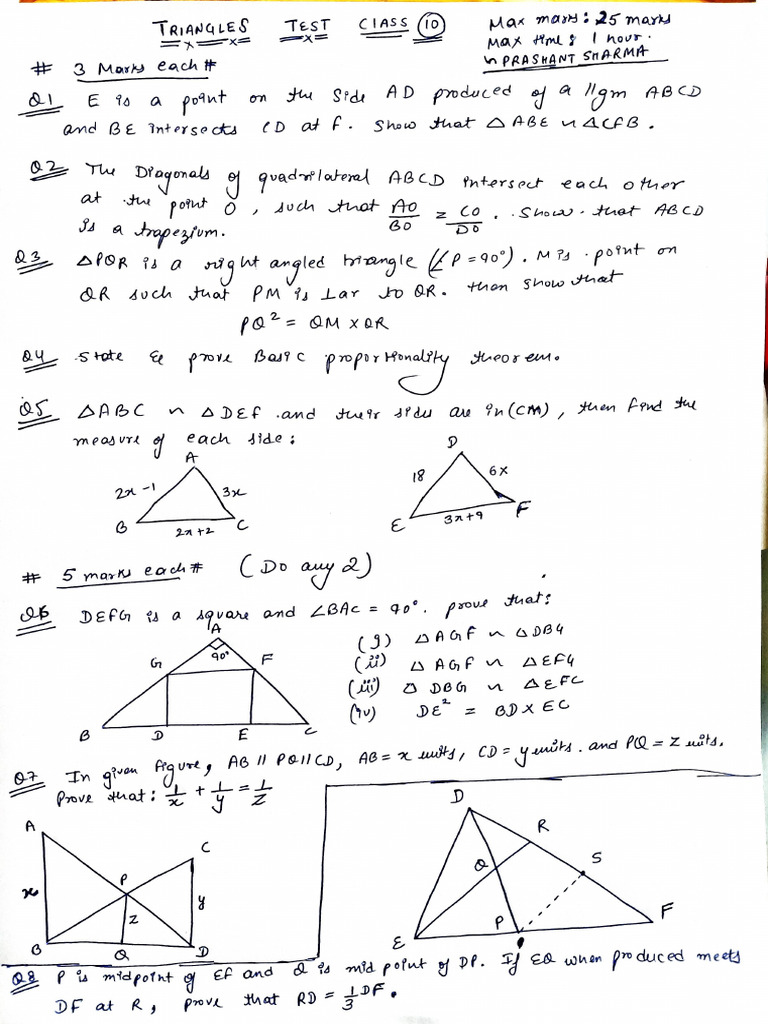 TRIANGLES TEST CLASS 10
Max marks: 25 marks
Max time: 1 hour.
PRASHANT SHARMA
# 3 Marks each #
Q1 E is a point on the side AD produced of a ||gm ABCD
and BE intersects CD at F. Show that △ABE ~ △CFB.
Q2 The Diagonals of quadrilateral ABCD intersect each other
at the point O, such that AO/BO = CO/DO. Show that ABCD
is a trapezium.
Q3 △PQR is a right angled triangle (∠P = 90°). M is point on
QR such that PM is ⊥ar to QR. then show that
PQ² = QM × QR
Q4 State & prove Basic proportionality theorem.
Q5 △ABC ~ △DEF and their sides are in (CM), then find the
measure of each side:
A
2x-1
3x
B
2x+2
C
D
18
6x
E
3x+9
F
# 5 marks each # (Do any 2)
Q6 DEFG is a square and ∠BAC = 90°. prove that:
(i) △AGF ~ △DBG
(ii) △AGF ~ △EFG
(iii) △DBG ~ △EFC
(iv) DE² = BD × EC
A
90°
G
F
B
D
E
C
Q7 In given figure, AB || PQ || CD, AB = x units, CD = y units. and PQ = z units.
Prove that: 1/x + 1/y = 1/z
A
C
P
x
z
y
B
Q
D
D
R
Q
S
E
P
F
Q8 P is midpoint of EF and Q is mid point of DP. If EQ when produced meets
DF at R, prove that RD = 1/3 DF.